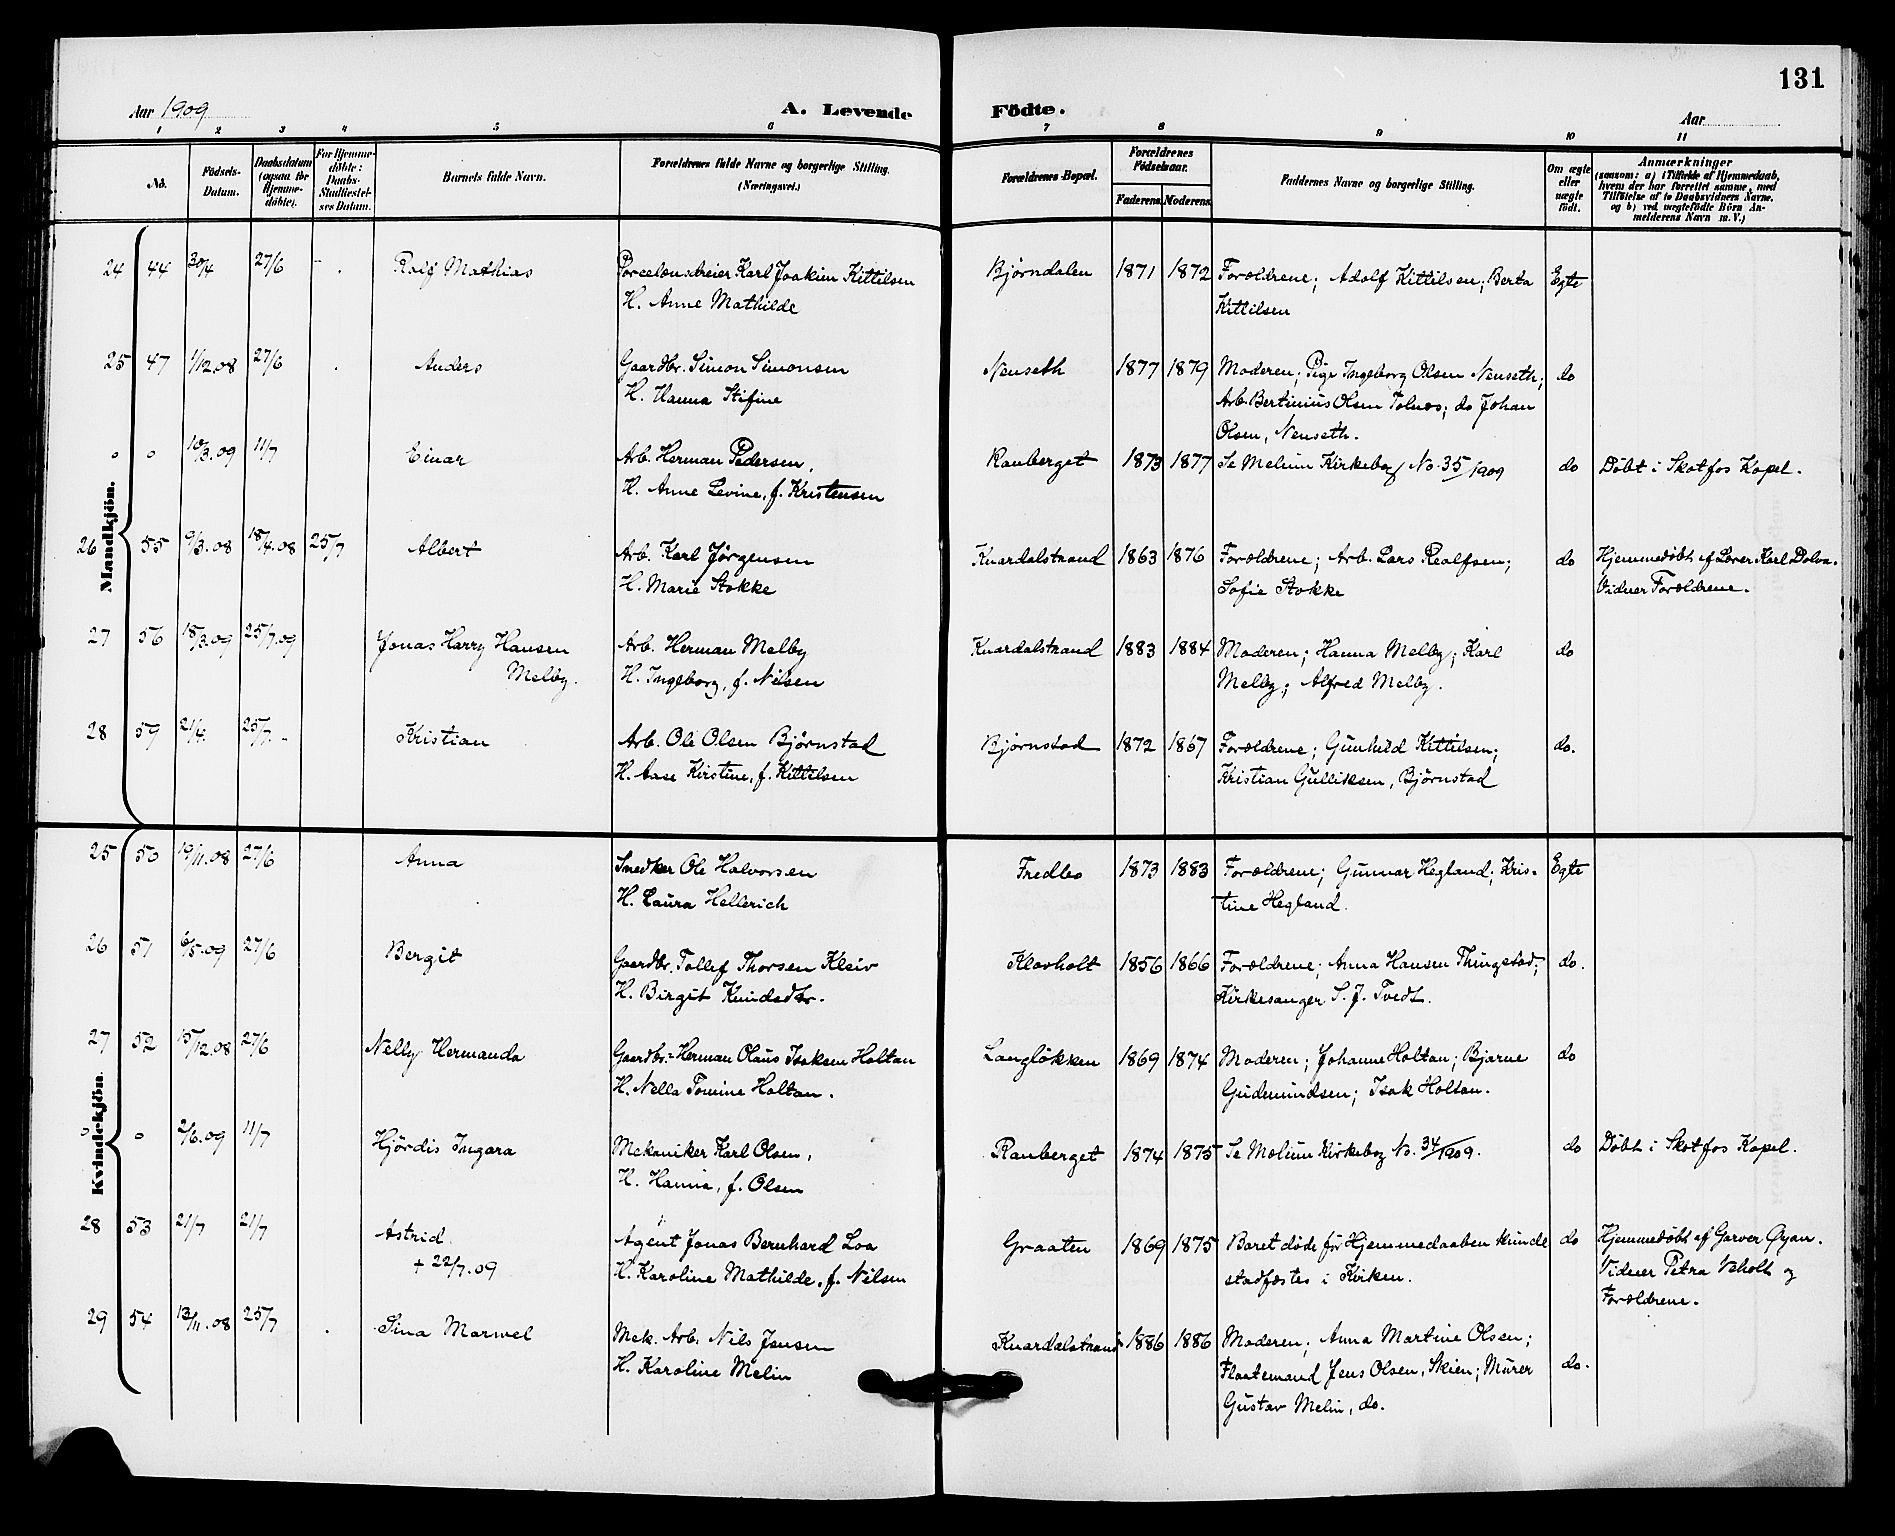 131
Aar 1909
A. Levende Födte.
Aar
1 2 3 4 5 6 7 8 9 10 11
No.
Födsels-Datum.
Daabsdatum (ogsaa for Hjemme-döbte).
For Hjemme-döbte: Daabs-Stadfæstel-ses Datum.
Barnets fulde Navn.
Forældrenes fulde Navne og borgerlige Stilling. (Næringsvei.)
Forældrenes Bopæl.
Forældrenes Födselsaar.
Faderens. Moderens.
Faddernes Navne og borgerlige Stilling.
Om ægte eller uægte födt.
Anmærkninger
(saasom: a) i Tilfælde af Hjemmedaab,
hvem der har forrettet samme, med
Tilföielse af to Daabsvidners Navne.
og b) ved uægtefödte Börn An-
melderens Navn m. V.)
Mandkjön.
24 44 30/4 27/6 - . Rolf Mathias Porcelænsdreier Karl Joakim Kittilsen Bjørndalen 1871 1872 Forældrene; Adolf Kittilsen; Berta Egte
H. Anne Mathilde Kittilsen
25 47 1/12.08 27/6 . Anders Gaardbr. Simon Simonsen Nenseth 1877 1879 Moderen; Pige Ingeborg Olsen Nenseth; do
H. Hanna Stifine Arb. Bertinius Olsen Tolnæs; do Johan
Olsen, Nenseth.
o o 10/3.09 11/7 Einar Arb. Herman Pedersen, Rauberget 1873 1877 Se Melum Kirkebog No. 35/1909 do Döbt i Skotfos Kapel.
H. Anne Levine, f. Kristensen
26 55 9/3.08 18/4.08 25/7 Albert Arb. Karl Jørgensen Knardalstrand 1863 1876 Forældrene; Arb. Lars Realfsen; do Hjemmedöbt af Lærer Karl Dolva.
H. Marie Stokke Sofie Stokke Vidner Forældrene.
27 56 18/3.09 25/7.09 Jonas Harry Hansen Arb. Herman Melby Knardalstrand 1883 1884 Moderen; Hanna Melby; Karl do
Melby. H. Ingeborg, f. Nilsen Melby; Alfred Melby.
28 59 21/4. 25/7.- Kristian Arb. Ole Olsen Bjørnstad Bjørnstad 1872 1867 Forældrene; Gunhild Kittilsen; do.
H. Aase Kirstine, f. Kittilsen Kristian Gulliksen, Bjørnstad
Kvindekjön.
25 50 19/11.08 27/6 Anna Snedker Ole Halvorsen Fredlbo 1873 1883 Forældrene; Gunnar Hegland; Kris- Egte
H. Laura Hellerich tine Hegland.
26 51 6/5.09 27/6 Bergit Gaardbr. Tollef Thorsen Kleiv Klovholt 1856 1866 Forældrene; Anna Hansen Thungstad; do.
H. Birgit Knudsdtr. Kirkesanger S. J. Tvedt.
27 52 15/12.08 27/6 Nelly Hermanda Gaardbr. Herman Olaus Isaksen Holtan Langløkken 1869 1874 Moderen; Johanne Holtan; Bjarne do
H. Nella Tomine Holtan. Gudemundsen; Isak Holtan.
o o 2/6.09 11/7 Hjördis Ingara Mekaniker Karl Olsen, Rauberget 1874 1875 Se Melum Kirkebog No. 34/1909. do Döbt i Skotfos Kapel.
H. Hanna, f. Olsen
28 53 21/7 21/7 Astrid. Agent Jonas Bernhard Loa Graaten 1869 1875 Baret døde før Hjemmedaaben kunde do Hjemmedöbt af Garver Øyan.
+ 22/7.09 H. Karoline Mathilde, f. Nilsen stadfæstes i Kirken. Vidner Petra Veholt og
Forældrene.
29 54 13/11.08 25/7 . Sina Marwel Mek. Arb. Nils Jensen Knardalstrand 1886 1886 Moderen; Anna Martine Olsen;
H. Karoline Melin Fløtemand Jens Olsen, Skien; Murer do.
Gustav Melin, do.